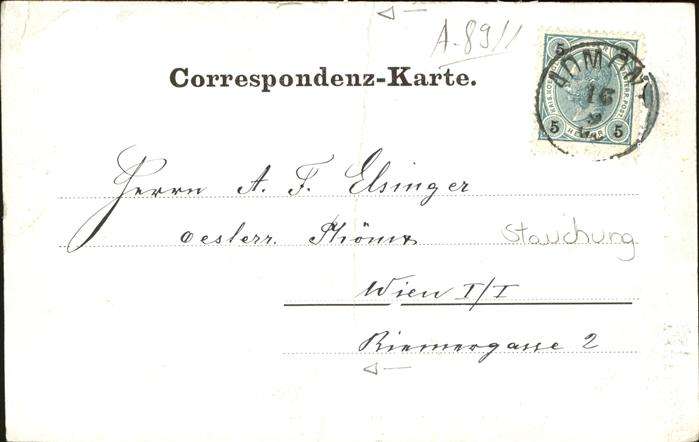 A.89//
Correspondenz-Karte.
ADMONT
16
5
5 5
Herrn A. F. Elsinger
oesterr. Phönix
Stauchung
Wien I/I
Riemergasse 2